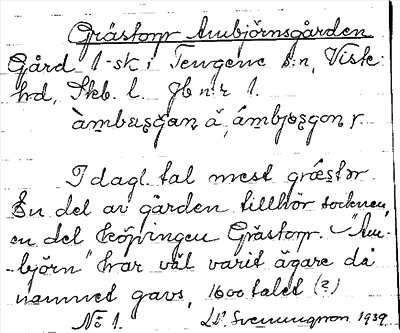 Grästorp Ambjörnsgården
Gård 1-sk i Tengene s:n, Viste
hd, Skb. l. Jb nr 1.
I dagl. tal mest
En del av gården tillhör socknen,
en del köpingen Grästorp. "Am-
-björn" har väl varit ägare då
namnet gavs, 1600 talet (?)
No 1. Svenungsson 1939